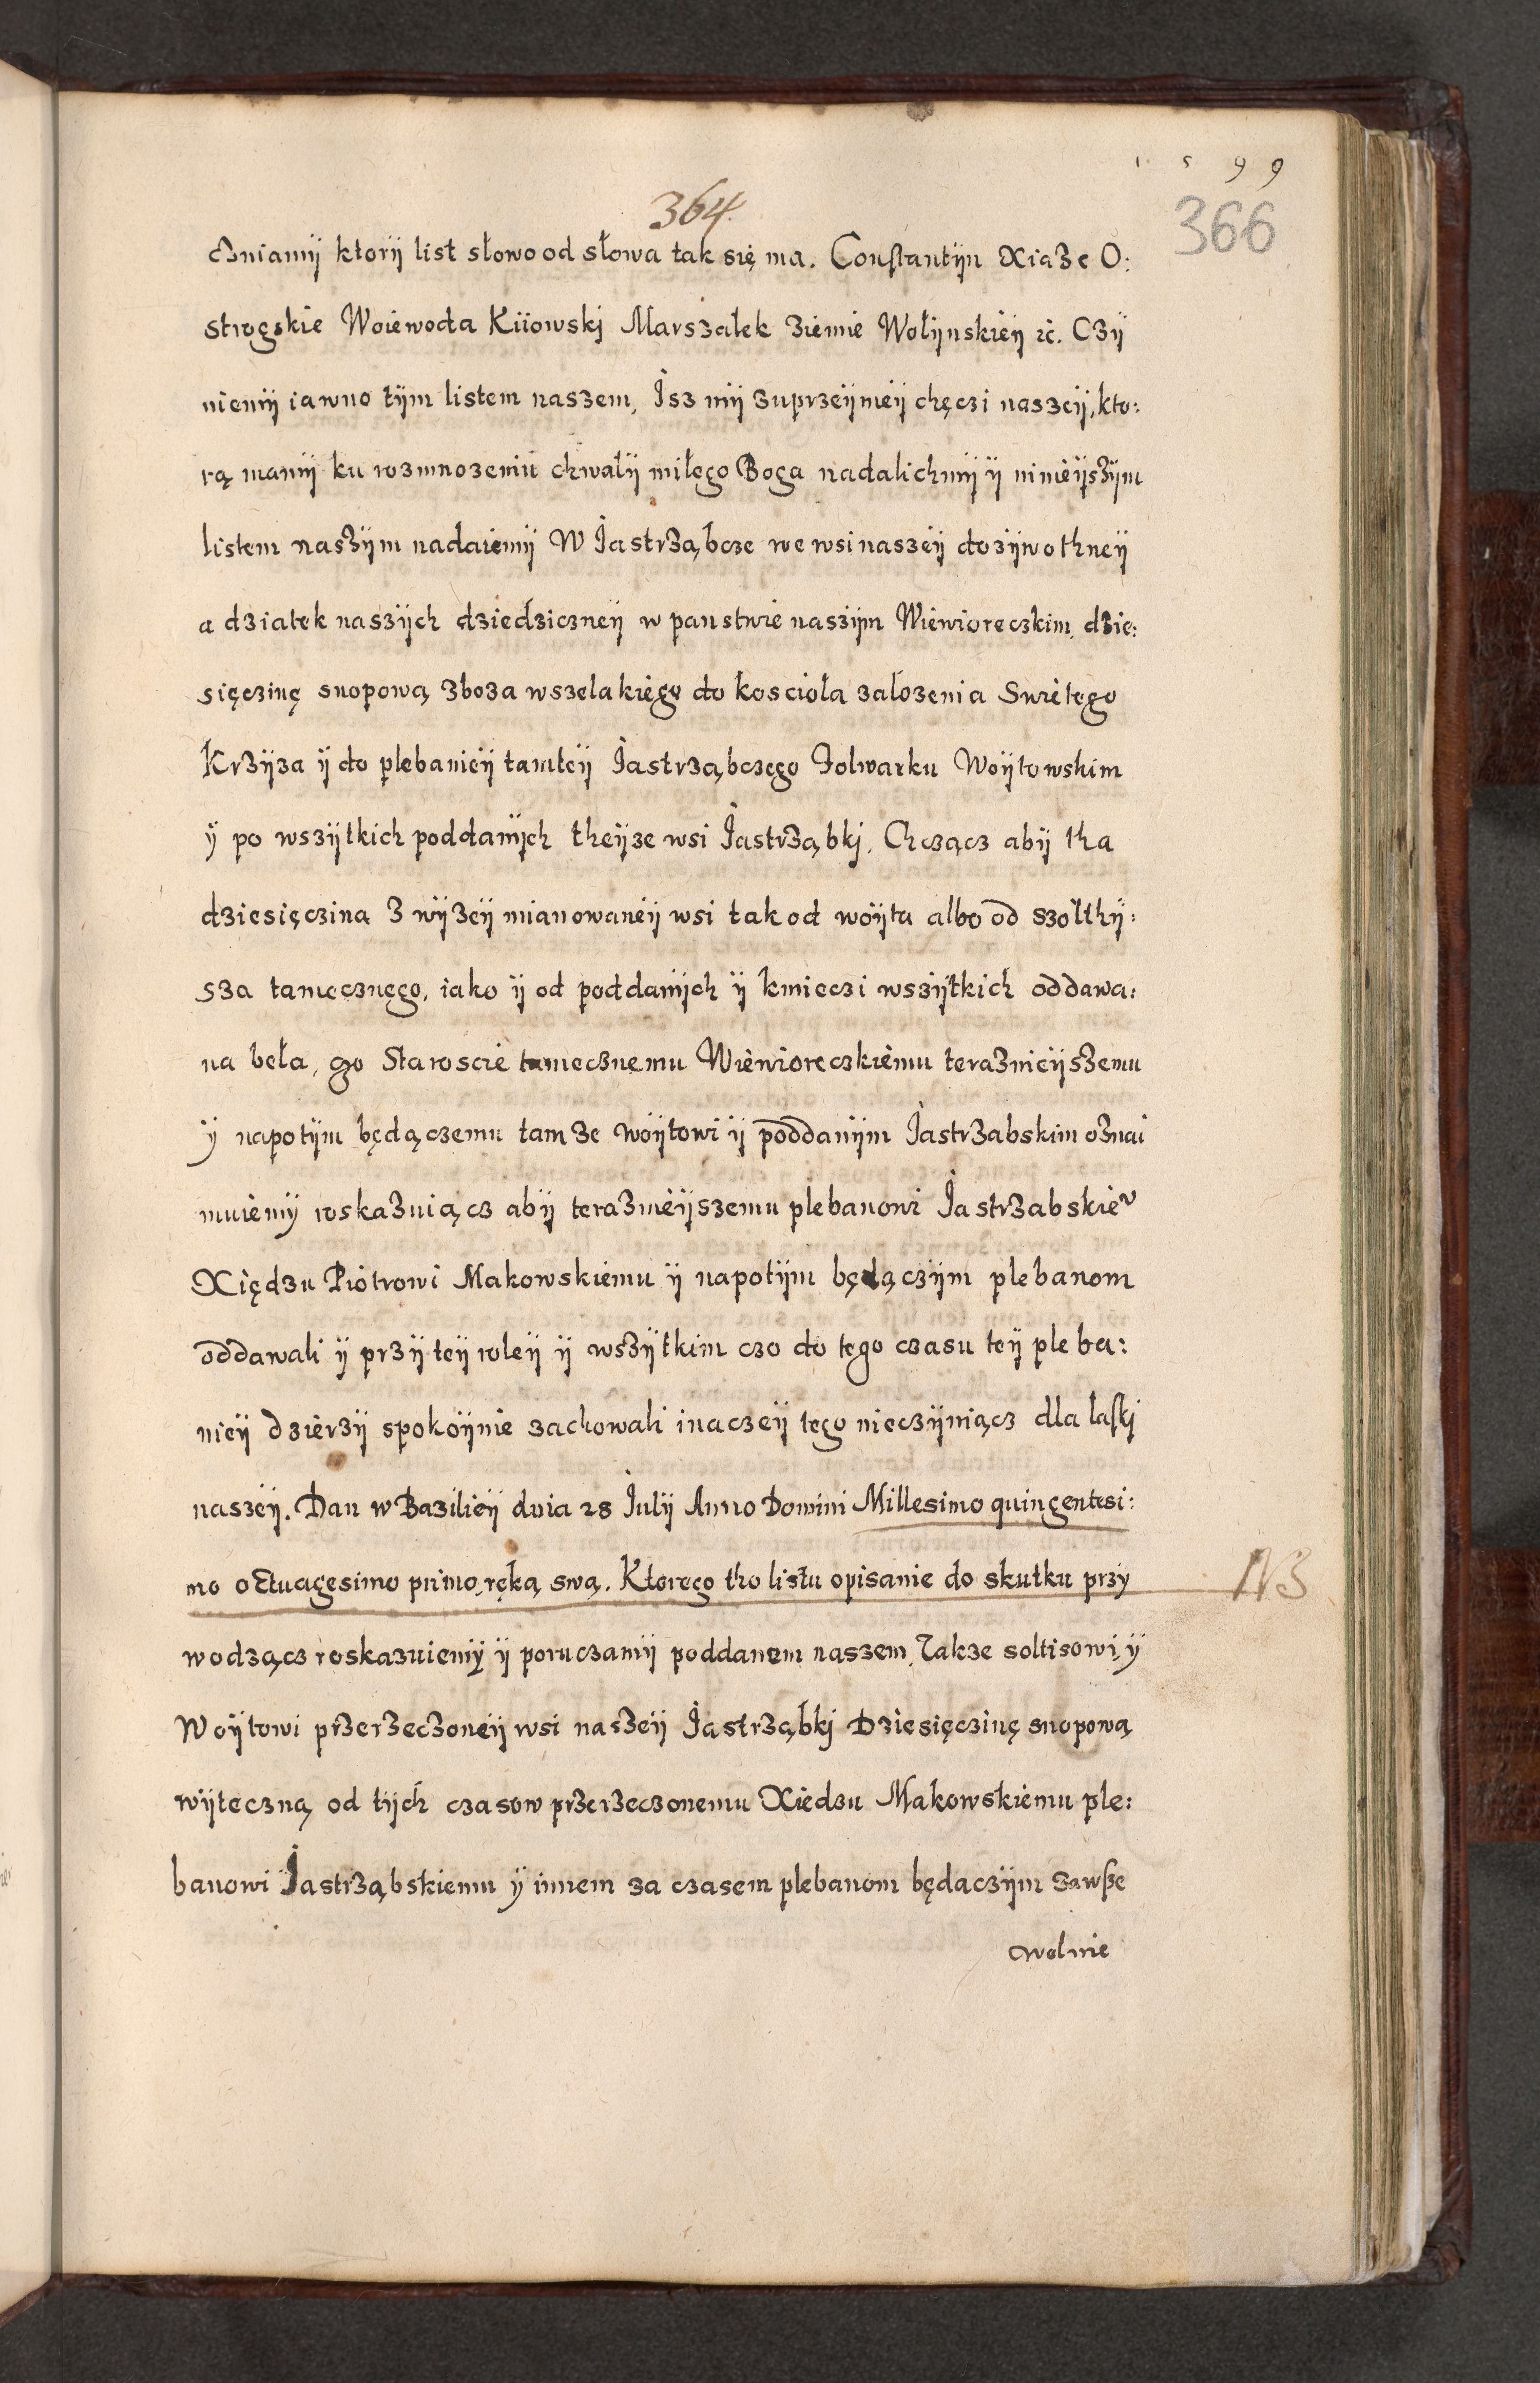 1 5 9 9
364.
366
czniamÿ ktorÿ list słowo od słowa tak się ma. Constantÿn Xiąze O:
strogskie Woiewoda Kiiowskj Marszałek ziemie Wołÿnskieÿ ic. Czÿ
niemÿ iawno tÿm listem naszem, Isz mÿ zuprzeÿmeÿ chęczi naszeÿ, kto:
rą mamÿ ku rozmnozeniu chwałÿ miłego Boga nadalichmÿ ÿ ninieÿszÿm
listem naszÿm nadaiemÿ W Jastrząbcze we wsi naszeÿ dozÿwothneÿ
a dziatek naszÿch dziedziczneÿ w panstwie naszÿm Wiewioreczkim, dzie:
sięczinę snopową zboza wszelakiego do kosciola zalozenia Swietego
Krzÿza ÿ do plebanieÿ tamteÿ Jastrząbczego Folwarku Woÿtowskim
ÿ po wszÿtkich poddanÿch theÿze wsi Jastrząbkj, Chcząncz abÿ tha
dziesięczina z wÿzeÿ mianowaneÿ wsi tak od woÿta albo od szolthÿ:
sza tamecznęgo, iako ÿ od poddanÿch ÿ kmieczi wszÿtkich oddawa:
na beła, go Staroscie tamecznemu Wiewioreczkiemu teraznieÿszemu
ÿ napotÿm będączemu tamze woÿtowi ÿ poddanÿm Jastrzabskim oznai
muiemy roskazuiącz abÿ teraznieÿszemu plebanowi Jastrzabskiev
Xiędzu Piotrowi Makowskiemu ÿ napotÿm będączÿm plebanom
oddawali ÿ przÿ teÿ roleÿ ÿ wszÿtkim czo do tego czasu teÿ pleba:
nieÿ dzierzÿ spokoÿnie zachowali inaczeÿ tego nieczÿniącz dla łaskj
naszeÿ. Dan w Bazilieÿ dnia 28 Julÿ Anno Domini Millesimo quingentesi:
mo octuagesimo primo, ręką swą. Ktorego tho listu opisanie do skutku przy
wodzącz roskazuiemÿ ÿ poruczamÿ poddanem naszem, Takze soltisowi, ÿ
Woÿtowi przerzeczoneÿ wsi naszeÿ Jastrząbkj Dziesięczinę snopową
wÿteczną od tÿch czasow przerzeczonemu Xiedzu Makowskiemu ple:
banowi Jastrząbskiemu ÿ innem za czasem plebanom będaczÿm zawße
wolnie
NB